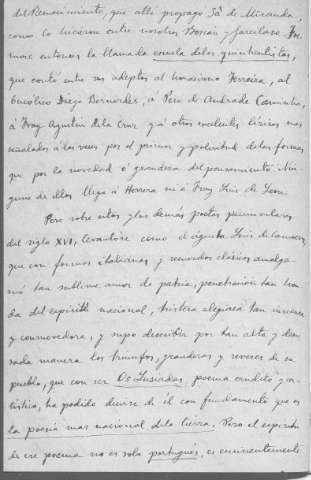 del Renacimiento, que allí propagó Sá de Miranda,
como lo hicieron entre nosotros Boscán y Garcilaso. For-
mose entonces la llamada escuela de los quinhentistas,
que contó entre sus adeptos al horaciano Ferreira, al
bucólico Diego Bernardes, á Pero de Andrade Caminha,
á Fray Agustín de la Cruz y á otros excelentes líricos mas
señalados á las veces por el primor y pulcritud de las formas
que por la novedad ó grandeza del pensamiento. Nin-
guno de ellos llega á Herrera ni á Fray Luis de Leon.
Pero sobre estos y los demás poetas peninsulares
del siglo XVI, levantóse como el águila Luis de Camoens,
que con formas italianas y recuerdos clásicos amalga-
mó tan sublime amor de patria, penetración tan hon-
da del espíritu nacional, tristeza elegiaca tan sincera
y conmovedora, y supo describir por tan alta y
manera los triunfos, grandezas y reveses de su
pueblo, que con ser Os Lusiadas poema erudito y ar-
tístico, ha podido decirse de él con fundamento que es
la poesía mas nacional de la tierra. Pero el espíritu
de ese poema no es solo portugués, es eminentemente